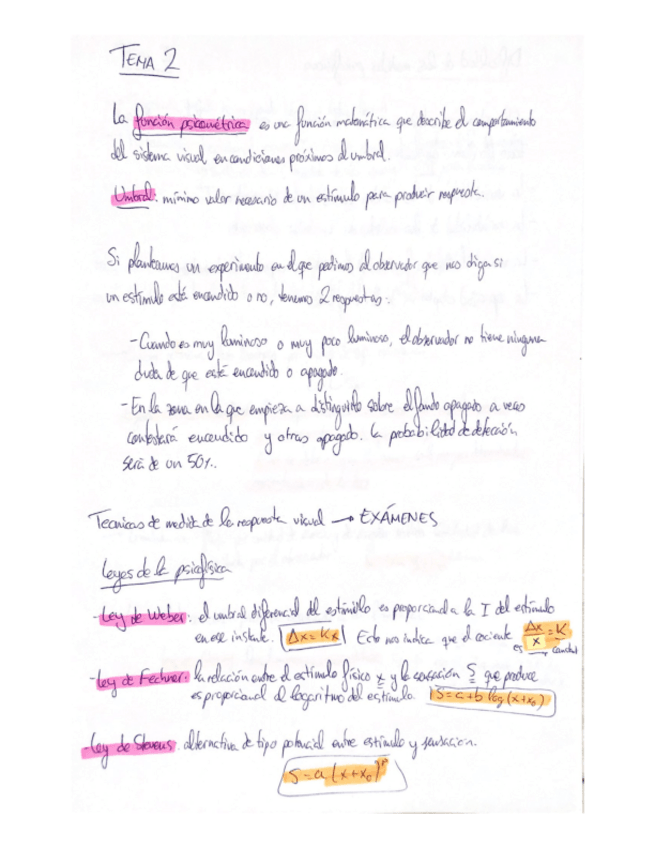 TEMA 2
La función psicométrica es una función matemática que describe el comportamiento
del sistema visual en condiciones próximas al umbral.
Umbral: mínimo valor necesario de un estímulo para producir respuesta.
Si planteamos un experimento en el que pedimos al observador que nos diga si
un estímulo está encendido o no, tenemos 2 respuestas:
- Cuando es muy luminoso o muy poco luminoso, el observador no tiene ninguna
duda de que está encendido o apagado.
- En la zona en la que empieza a distinguirlo sobre el fondo apagado a veces
contestará encendido y otras apagado. La probabilidad de detección
será de un 50%.
Tecnicas de medida de la respuesta visual → EXÁMENES
Leyes de la psicofísica
- Ley de Weber: el umbral diferencial del estímulo es proporcional a la I del estímulo
en ese instante. Δx = Kx Esto nos indica que el cociente Δx/x = K
es → const
- Ley de Fechner: la relación entre el estímulo físico x y la sensación S que produce
es proporcional al logaritmo del estímulo. S = a + b log (x+x₀)
- Ley de Stevens: alternativa de tipo potencial entre estímulo y sensación.
S = a (x+x₀)ᵖ